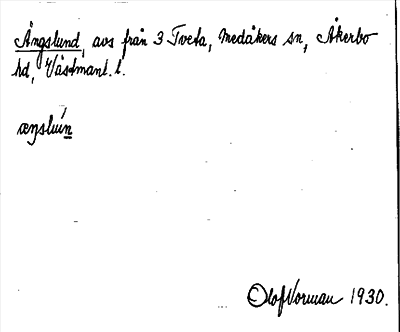 Ängslund, avs från 3 Tveta, Medåkers sn, Åkerbo
hd, Västmanl. l.
Olof Vorman 1930.